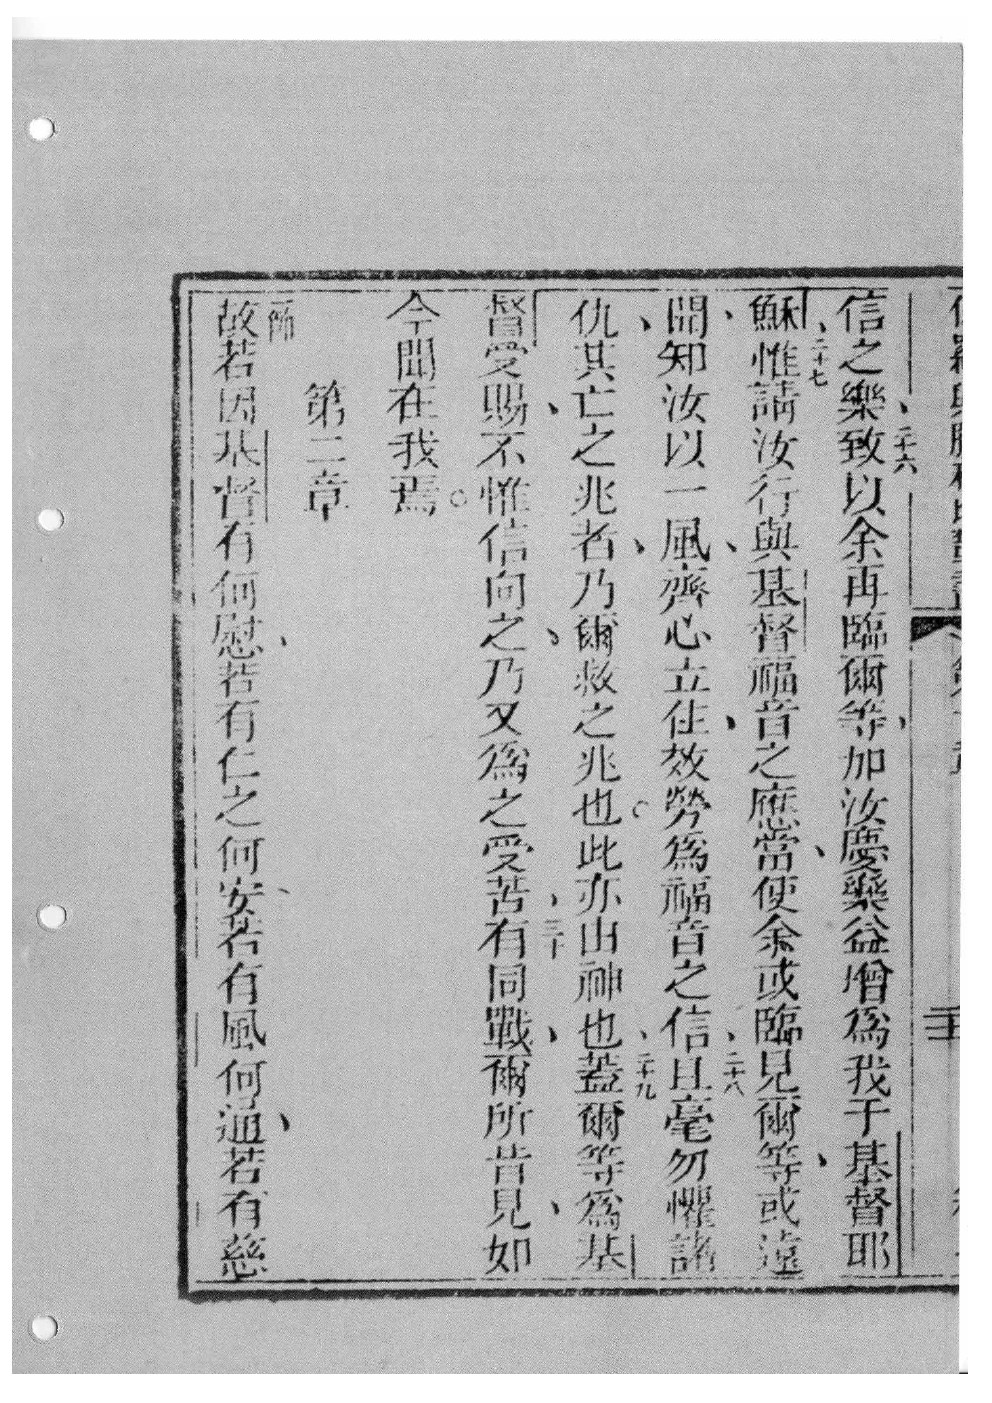 信之樂致、二十六以余再臨爾等、加汝慶樂益增爲我于基督耶
穌、二十七惟請汝行與基督福音之應當、使余或臨見爾等、或遠
聞、知汝以一風、齊心立住、效勞爲福音之信、二十八且毫勿懼諸
仇、其亡之兆者、乃爾救之兆也。此亦由神也、二十九蓋爾等爲基
督受賜、不惟信向之、乃又爲之受苦、三十有同戰、爾所昔見、如
今聞在我焉。
第二章
一節故若因基督有何慰、若有仁之何安、若有風何通、若有慈